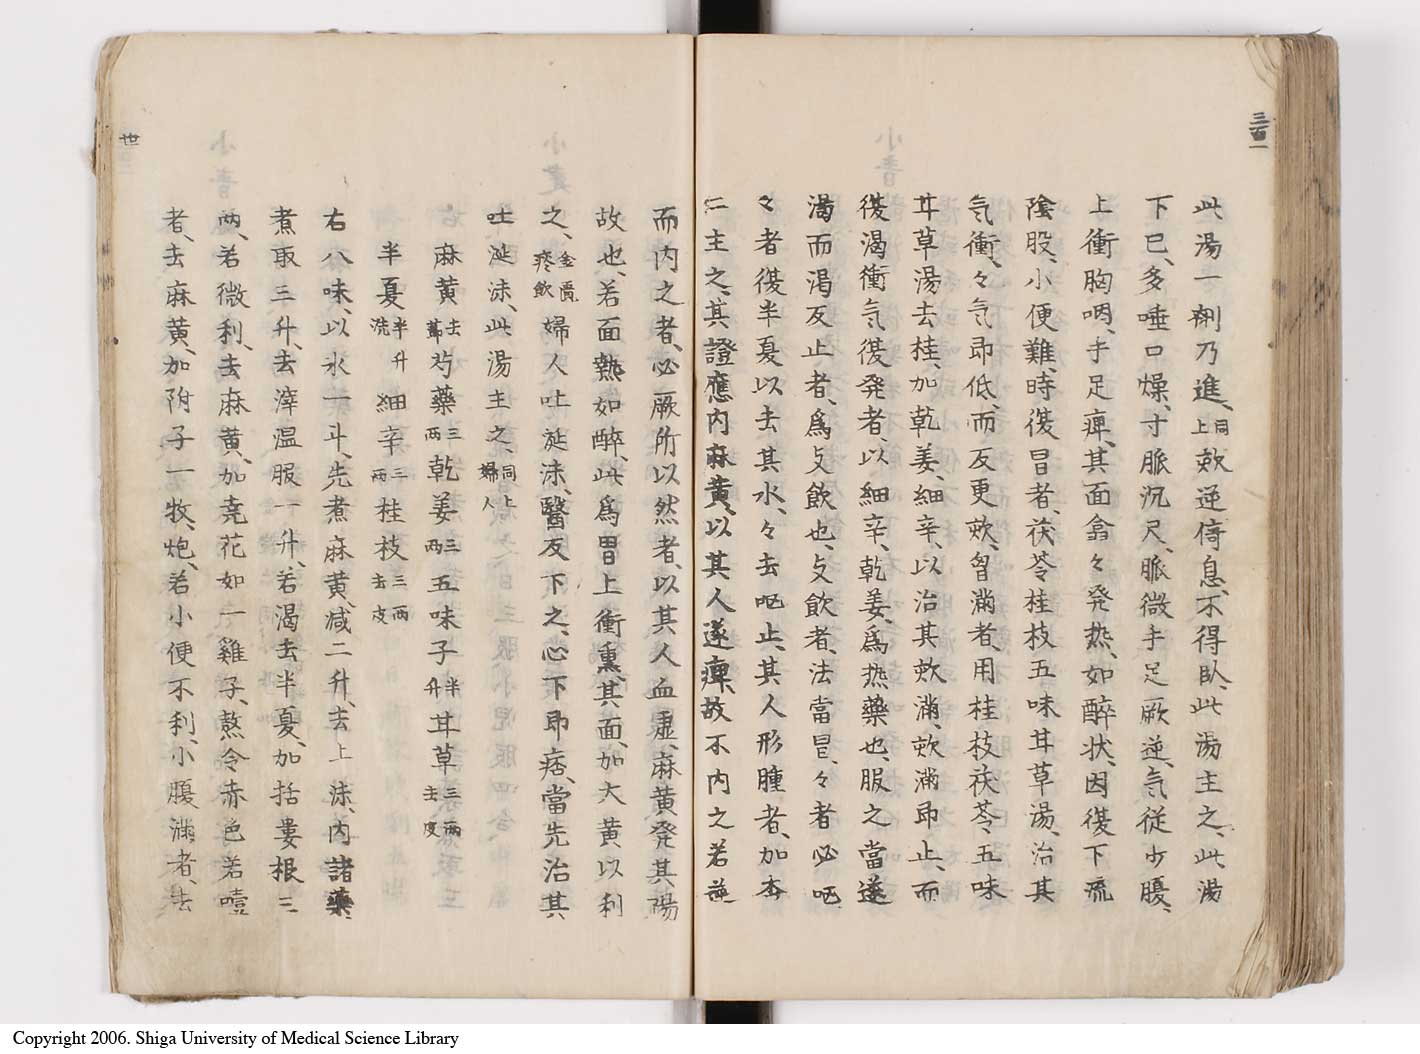 此湯一劑乃進、同上欬逆倚息、不得臥、此湯主之、此湯
下已、多唾口燥、寸脈沉尺、脈微手足厥逆、气從少腹、
上衝胸咽、手足痺、其面翕々発热、如醉状、因復下流
陰股、小便難、時復冒者、茯苓桂枝五味甘草湯、治其
气衝、々气即低、而反更欬、胷滿者、用桂枝茯苓五味
甘草湯去桂、加乾姜、細辛、以治其欬滿、欬滿即止、而
復渴衝气復発者、以細辛、乾姜、爲热藥也、服之當遂
渴而渴反止者、爲攴飲也、攴飲者、法當冒、々者必呕
々者復半夏以去其水、々去呕止、其人形腫者、加杏
仁主之、其證應内麻黄、以其人遂痺、故不内之若逆
而内之者、必厥所以然者、以其人血虚、麻黄発其陽
故也、若面熱如醉、此爲胃上衝熏、其面、加大黄以利
之、金匱痰飲婦人吐涎沫、醫反下之、心下即痞、當先治其
吐涎沫、此湯主之、同上婦人
麻黄去莭芍藥三两乾姜三两五味子半升甘草三两去皮
半夏半升洗細辛三两桂枝三两去皮
右八味、以水一斗、先煮麻黄、减二升、去上沫、内諸藥、
煮取三升、去滓温服一升、若渴去半夏、加括蔞根三
两、若微利、去麻黄、加荛花如一雞子、熬令赤色若噎
者、去麻黄、加附子一枚、炮、若小便不利、小腹滿者、去
三百一
卅